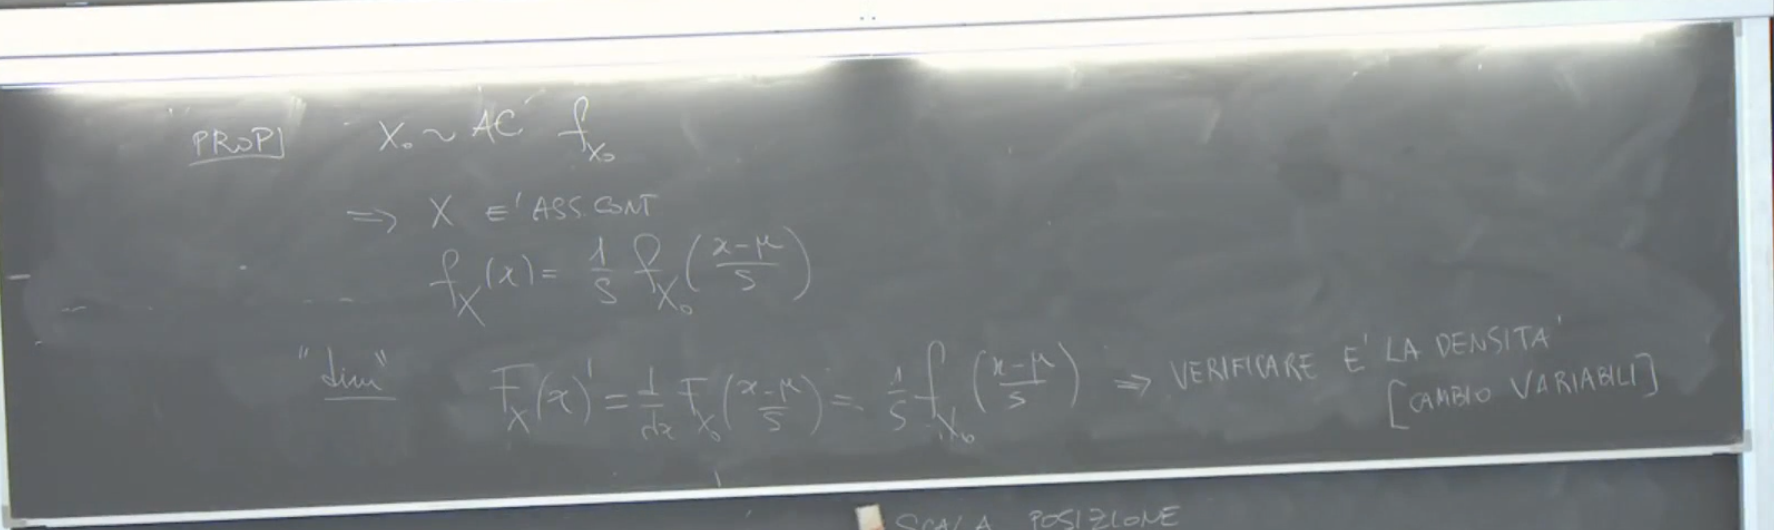 PROP] X₀ ~ AC f_{X₀}
=> X E' ASS. CONT
f_X(x) = 1/s f_{X₀}((x-μ)/s)
"dim" F_X(x)' = d/dx F_{X₀}((x-μ)/s) = 1/s f_{X₀}((x-μ)/s) => VERIFICARE E' LA DENSITA'
[CAMBIO VARIABILI]
SCALA POSIZIONE